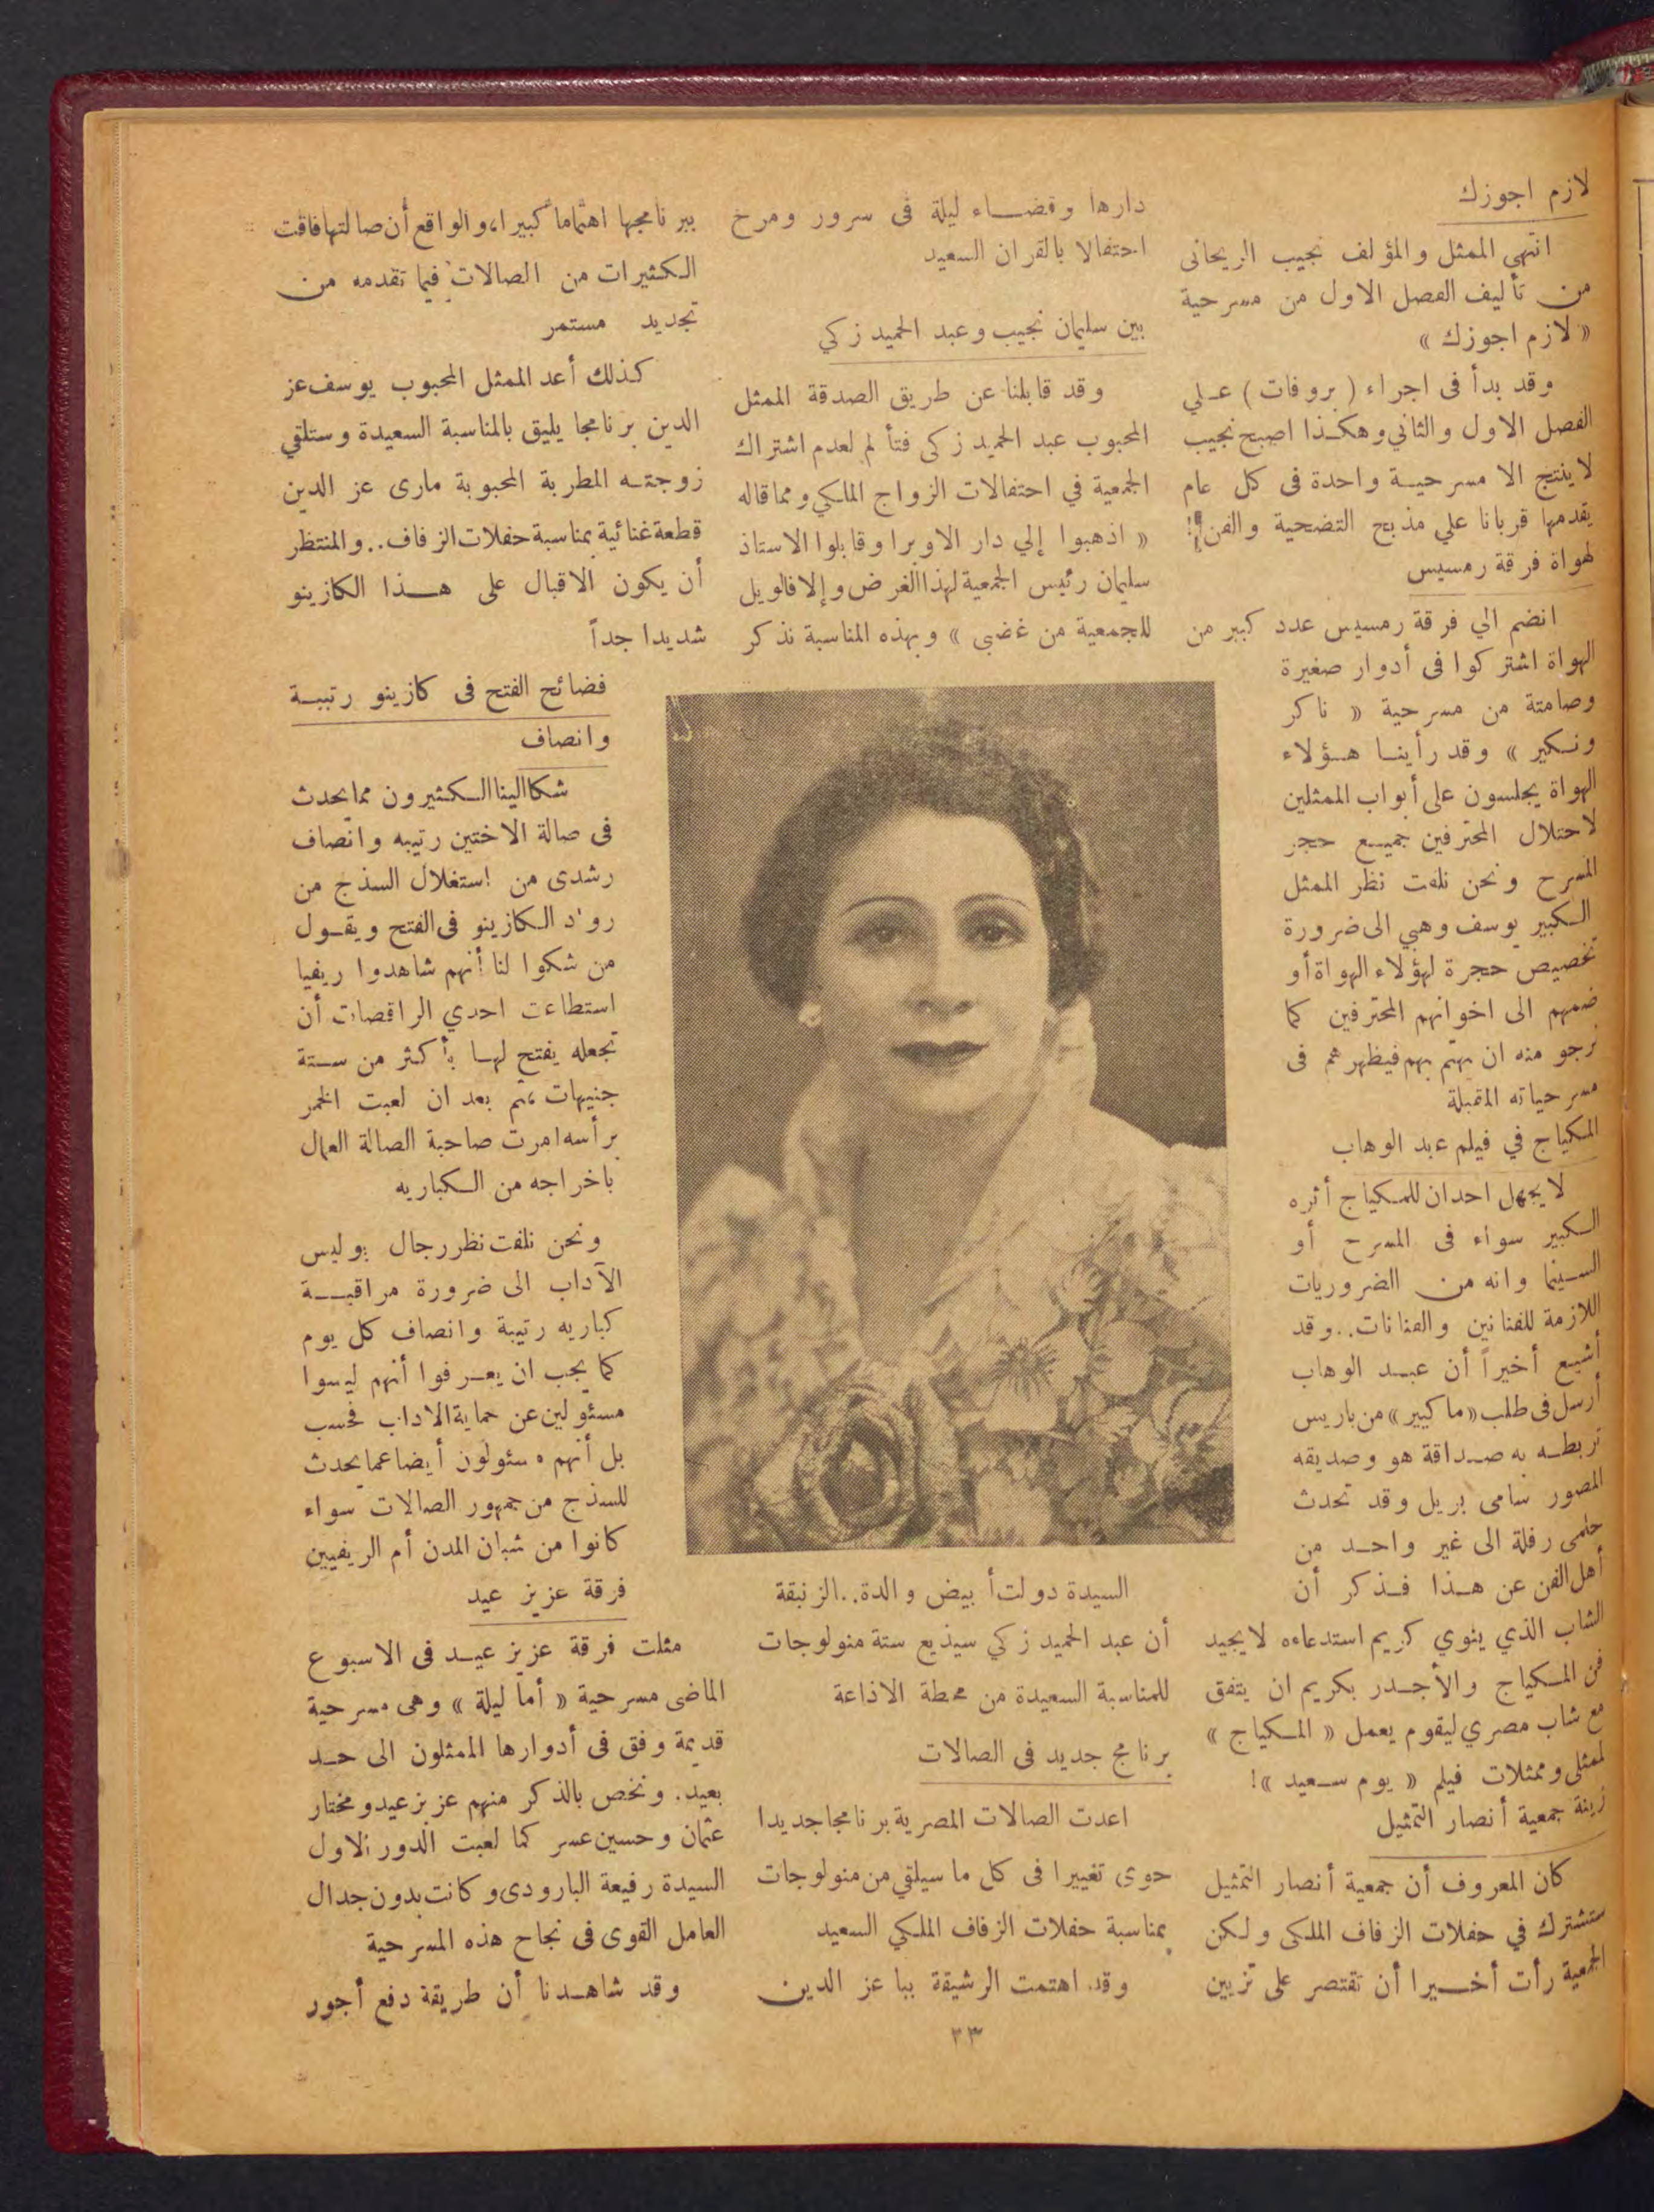 لازم اجوزك
انتهى الممثل والمؤلف نجيب الريحانى
من تأليف الفصل الاول من مسرحية
« لازم اجوزك »
وقد بدأ فى اجراء ( بروفات ) على
الفصل الاول والثاني وهكذا اصبح نجيب
لا ينتج الا مسرحية واحدة فى كل عام
يقدمها قربانا علي مذبح التضحية والفن!!
هواة فرقة رمسيس
انضم الي فرقة رمسيس عدد كبير من
الهواة اشتركوا فى أدوار صغيرة
وصامتة من مسرحية « ناكر
ونكير » وقد رأينا هؤلاء
الهواة يجلسون على أبواب الممثلين
لاحتلال المحترفين جميع حجر
المسرح ونحن نلفت نظر الممثل
الكبير يوسف وهبي الى ضرورة
تخصيص حجرة لهؤلاء الهواة أو
ضمهم الى اخوانهم المحترفين كما
نرجو منه ان يهتم بهم فيظهرهم فى
مسرحياته المقبلة
المكياج في فيلم عبد الوهاب
لا يجهل احد ان للمكياج أثره
الكبير سواء فى المسرح أو
السينما وانه من الضروريات
اللازمة للفنانين والفنانات..وقد
أشيع أخيراً أن عبد الوهاب
أرسل فى طلب «ماكيير» من باريس
تربطه به صداقة هو وصديقه
المصور سامى بريل وقد تحدث
حلمى رفلة الى غير واحد من
أهل الفن عن هذا فذكر أن
الشاب الذي ينوي كريم استدعاءه لا يجيد
فن المكياج والأجدر بكريم ان يتفق
مع شاب مصري ليقوم يعمل « المكياج »
لممثلى وممثلات فيلم « يوم سعيد »!
زينة جمعية أنصار التمثيل
كان المعروف أن جمعية أنصار التمثيل
ستشترك في حفلات الزفاف الملكى ولكن
الجمعية رأت أخيرا أن تقتصر على تزيين
دارها وقضاء ليلة فى سرور ومرح
احتفالا بالقران السعيد
بين سليمان نجيب وعبد الحميد زكي
وقد قابلنا عن طريق الصدفة الممثل
المحبوب عبد الحميد زكى فتألم لعدم اشتراك
الجمعية في احتفالات الزواج الملكي ومما قاله
« اذهبوا إلي دار الاوبرا وقابلوا الاستاذ
سليمان رئيس الجمعية لهذا الغرض وإلا فالويل
للجمعية من غضبى » وبهذه المناسبة نذكر
السيدة دولت أبيض والدة..الزنبقة
أن عبد الحميد زكي سيذيع ستة منولوجات
للمناسبة السعيدة من محطة الاذاعة
برنامج جديد فى الصالات
اعدت الصالات المصرية برنامجا جديدا
حوى تغييرا فى كل ما سيلقي من منولوجات
بمناسبة حفلات الزفاف الملكي السعيد
وقد اهتمت الرشيقة ببا عز الدين
ببرنامجها اهتماما كبيرا، والواقع أن صالتها فاقت
الكثيرات من الصالات فيما تقدمه من
تجديد مستمر
كذلك أعد الممثل المحبوب يوسف عز
الدين برنامجا يليق بالمناسبة السعيدة وستلقي
زوجته المطربة المحبوبة مارى عز الدين
قطعة غنائية بمناسبة حفلات الزفاف..والمنتظر
أن يكون الاقبال على هذا الكازينو
شديدا جداً
فضائح الفتح فى كازينو رتيبة
وانصاف
شكا الينا الكثيرون مما يحدث
فى صالة الاختين رتيبه وانصاف
رشدى من استغلال السذج من
رواد الكازينو فى الفتح ويقول
من شكوا لنا أنهم شاهدوا ريفيا
استطاعت احدي الراقصات أن
تجعله يفتح لها بأكثر من ستة
جنيهات ثم بعد ان لعبت الخمر
برأسه امرت صاحبة الصالة العمال
باخراجه من الكباريه
ونحن نلفت نظر رجال بوليس
الآداب الى ضرورة مراقبة
كباريه رتيبة وانصاف كل يوم
كما يجب ان يعرفوا أنهم ليسوا
مسئولين عن حماية الاداب فحسب
بل أنهم مسئولون أيضا عما يحدث
للسذج من جمهور الصالات سواء
كانوا من شبان المدن أم الريفيين
فرقة عزيز عيد
مثلت فرقة عزيز عيد فى الاسبوع
الماضى مسرحية « أما ليلة » وهى مسرحية
قديمة وفق فى أدوارها الممثلون الى حد
بعيد. ونخص بالذكر منهم عزيز عيد ومختار
عثمان وحسين عسر كما لعبت الدور الاول
السيدة رفيعة البارودى وكانت بدون جدال
العامل القوى فى نجاح هذه المسرحية
وقد شاهدنا أن طريقة دفع أجور
٢٣